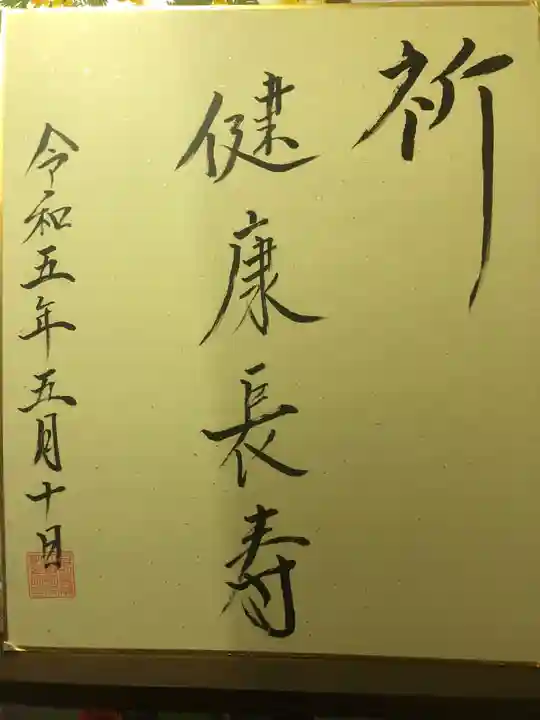 祈
健康長寿
令和五年五月十日